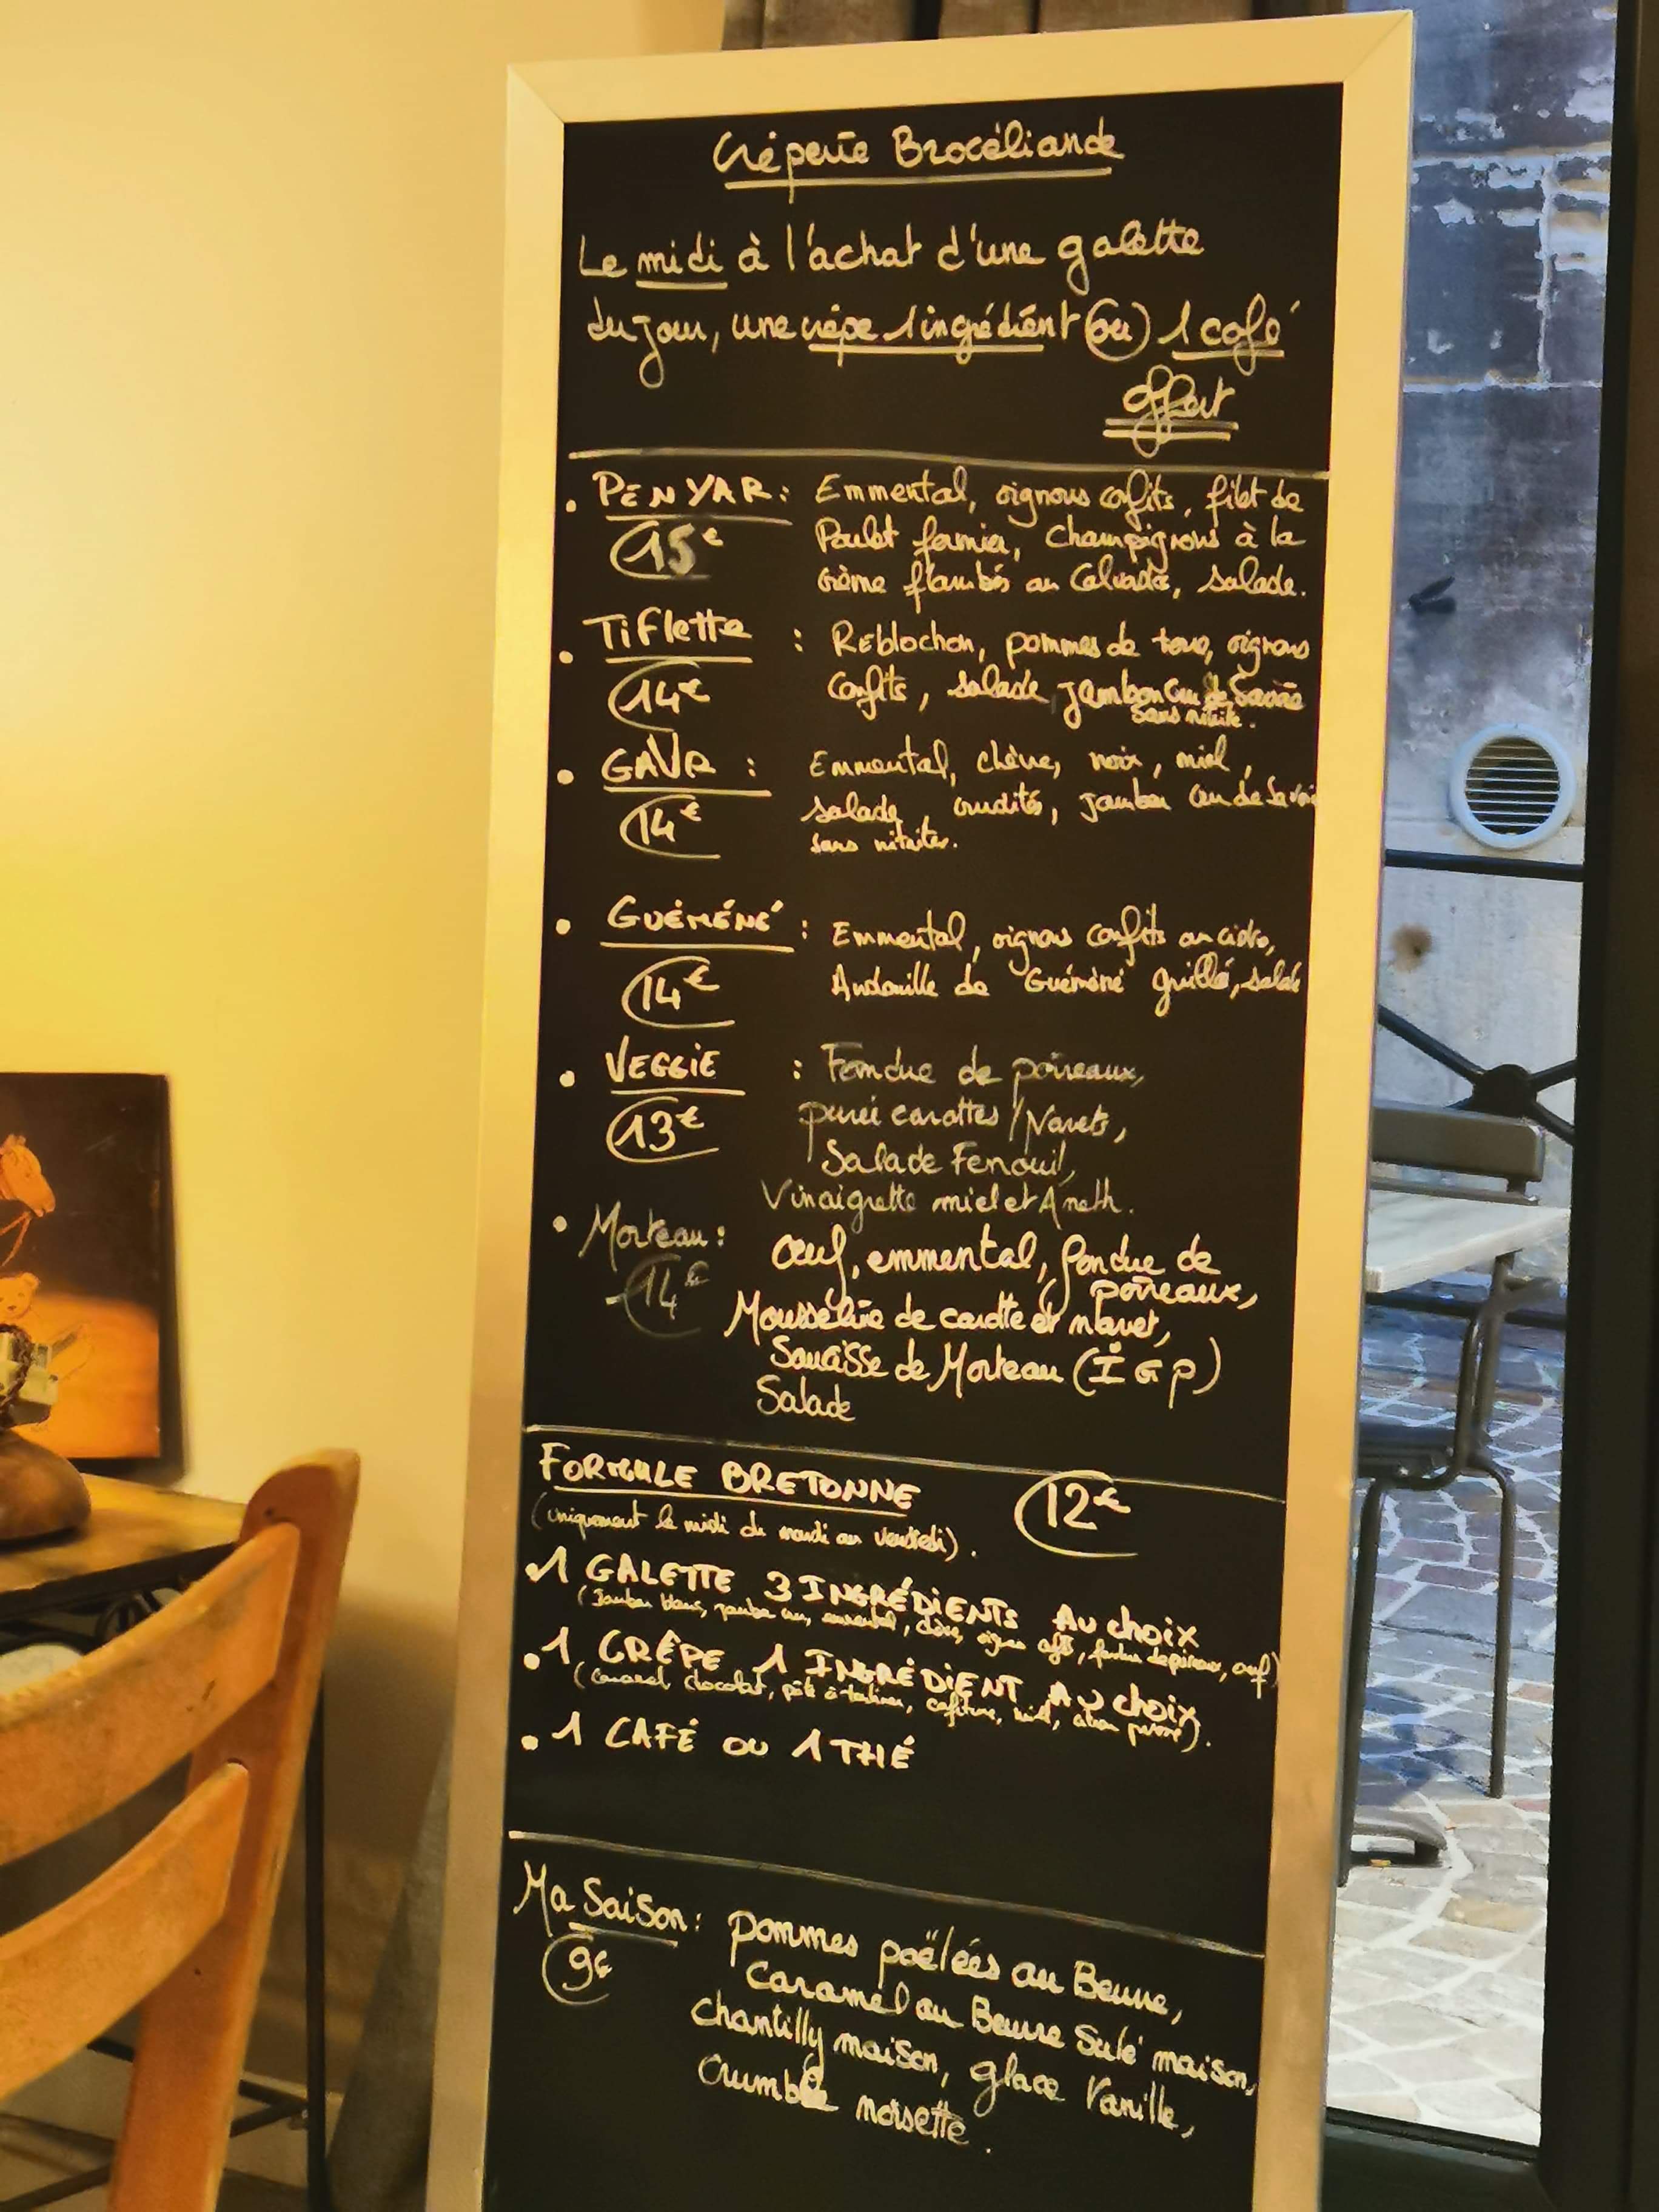 Crêperie Brocéliande
Le midi à l'achat d'une galette
du jour, une crêpe 1 ingrédient ou 1 café
offert
• PENYAR : Emmental, oignons confits, filet de
15€ Poulet fermier, Champignons à la
crème flambés au Calvados, salade.
• Tiflette : Reblochon, pommes de terre, oignons
14€ confits, salade, jambon cru de Savoie
sans nitrite.
• GAVR : Emmental, chèvre, noix, miel,
14€ salade, crudités, jambon cru de Savoie
sans nitrites.
• GUÉMÉNÉ : Emmental, oignons confits au cidre,
14€ Andouille de Guémené grillé, salade
• VEGGIE : Fondue de poireaux,
13€ purée carottes / Navets,
Salade Fenouil,
Vinaigrette miel et Aneth.
• Morteau : Œuf, emmental, fondue de
14€ poireaux,
Mousseline de carotte et navet,
Saucisse de Morteau (IGP)
Salade
FORMULE BRETONNE 12€
(uniquement le midi du mardi au vendredi).
1 GALETTE 3 INGRÉDIENTS Au choix
(Jambon blanc, jambon cru, emmental, chèvre, oignons, fondue de poireaux, œuf)
• 1 CRÊPE 1 INGRÉDIENT AU choix
(Caramel, chocolat, pâte à tartiner, confiture, miel, citron pressé).
• 1 CAFÉ OU 1 THÉ
Ma Saison : pommes poëlées au Beurre,
9€ Caramel au Beurre Salé maison,
chantilly maison, glace Vanille,
Crumble noisette.